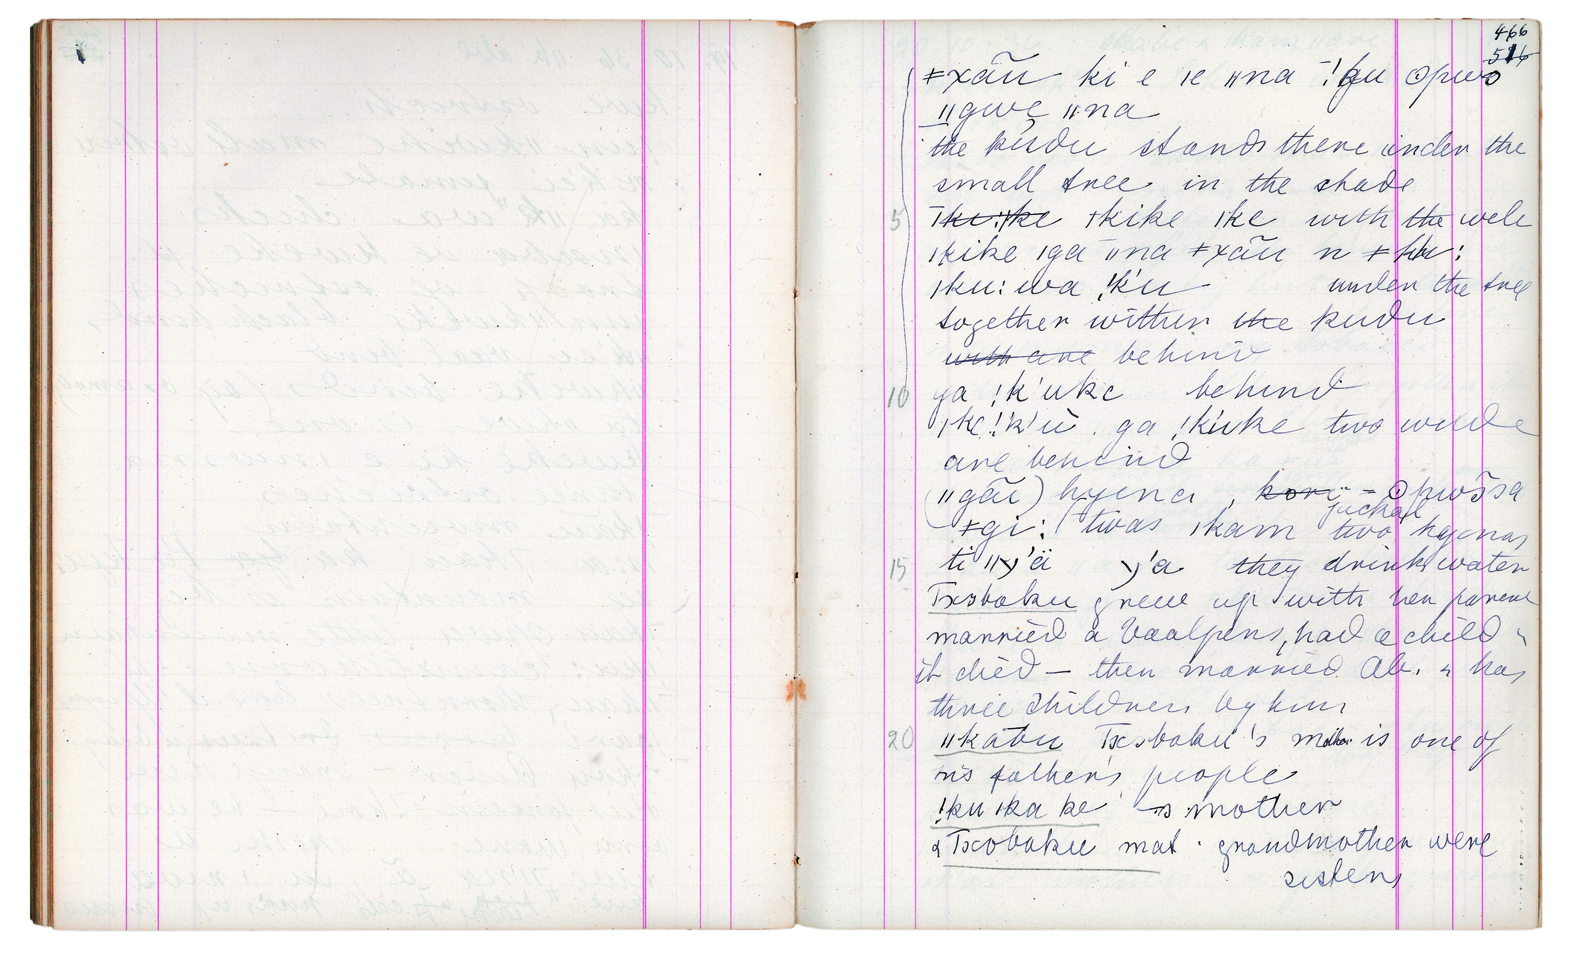 466
516
ǂxãũ ki e ıe ǁna ǃgu ʘpwə
ǁgwe ǁna
the kudu stands there under the
small tree in the shade
5 ǀke ǃke ǀkike ǀke with the wele
ǀkike ǀga ǁna ǂxãũ n ǂhu:
ǀku: wa ǃk'u under the tree
together with the kudu
with are behind
10 ga ǃk'uke behind
ǀke ǃk'u. ga ǃk'uke two wilde
are behind
(ǁgãũ) hyena, kori - ʘpwɔ̃sa
jackal
ǂgi: twas ǀkam two hyenas
15 ti ǁy'ä y'a they drink water
Txobaku grew up with her parent
married a Vaalpens, had a child &
it died — then married Ab. & has
three children by him
20 ǁkabu Txobaku's mother is one of
his father's people
ǃku ǀka ke —s mother
& Txobaku mat. grandmother were
sisters